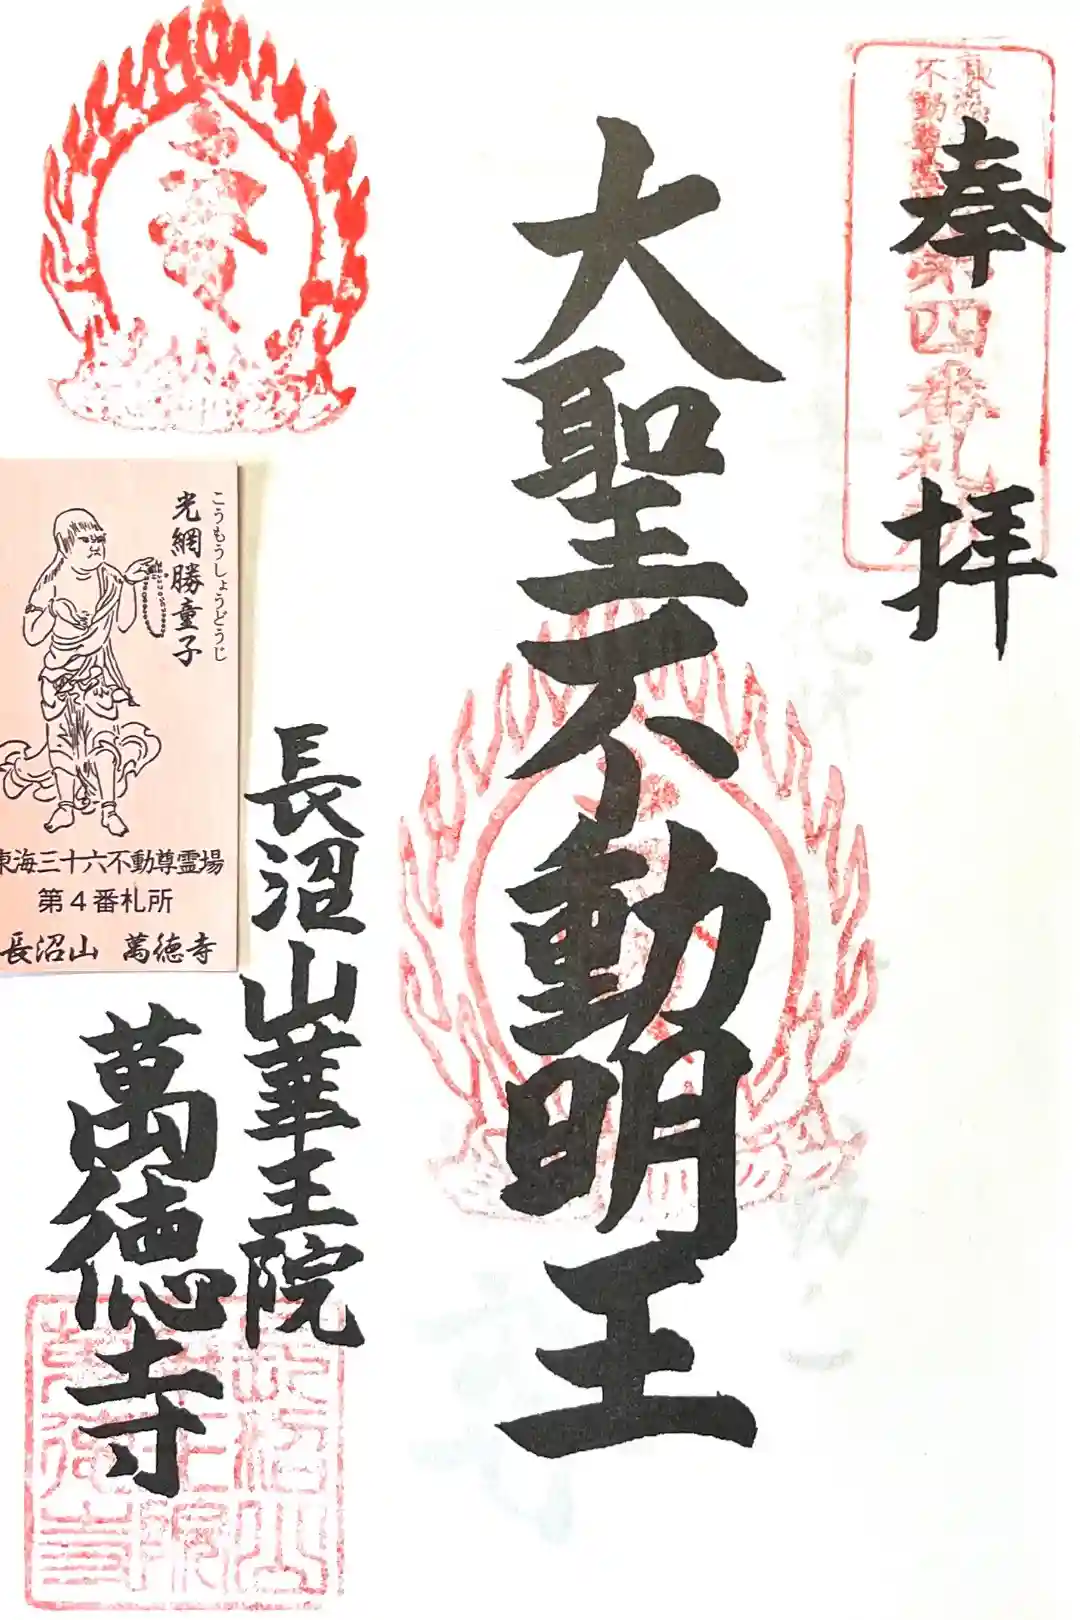 奉拝
東海三十六
不動尊霊場
第四番札所
大聖不動明王
長沼山華王院
萬徳寺
こうもうしょうどうじ
光網勝童子
東海三十六不動尊霊場
第4番札所
長沼山 萬徳寺